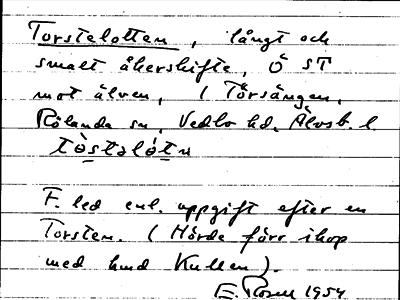 Torstelotten, långt och
smalt åkerskifte, Ö ST
mot älven, i Torsängen,
Rölanda sn, Vedbo hd, Älvsb. l.
tòstəlótn
F. led enl. uppgift efter en
Torsten. (Hörde förr ihop
med hmd Kullen).
E. Rosell 1954